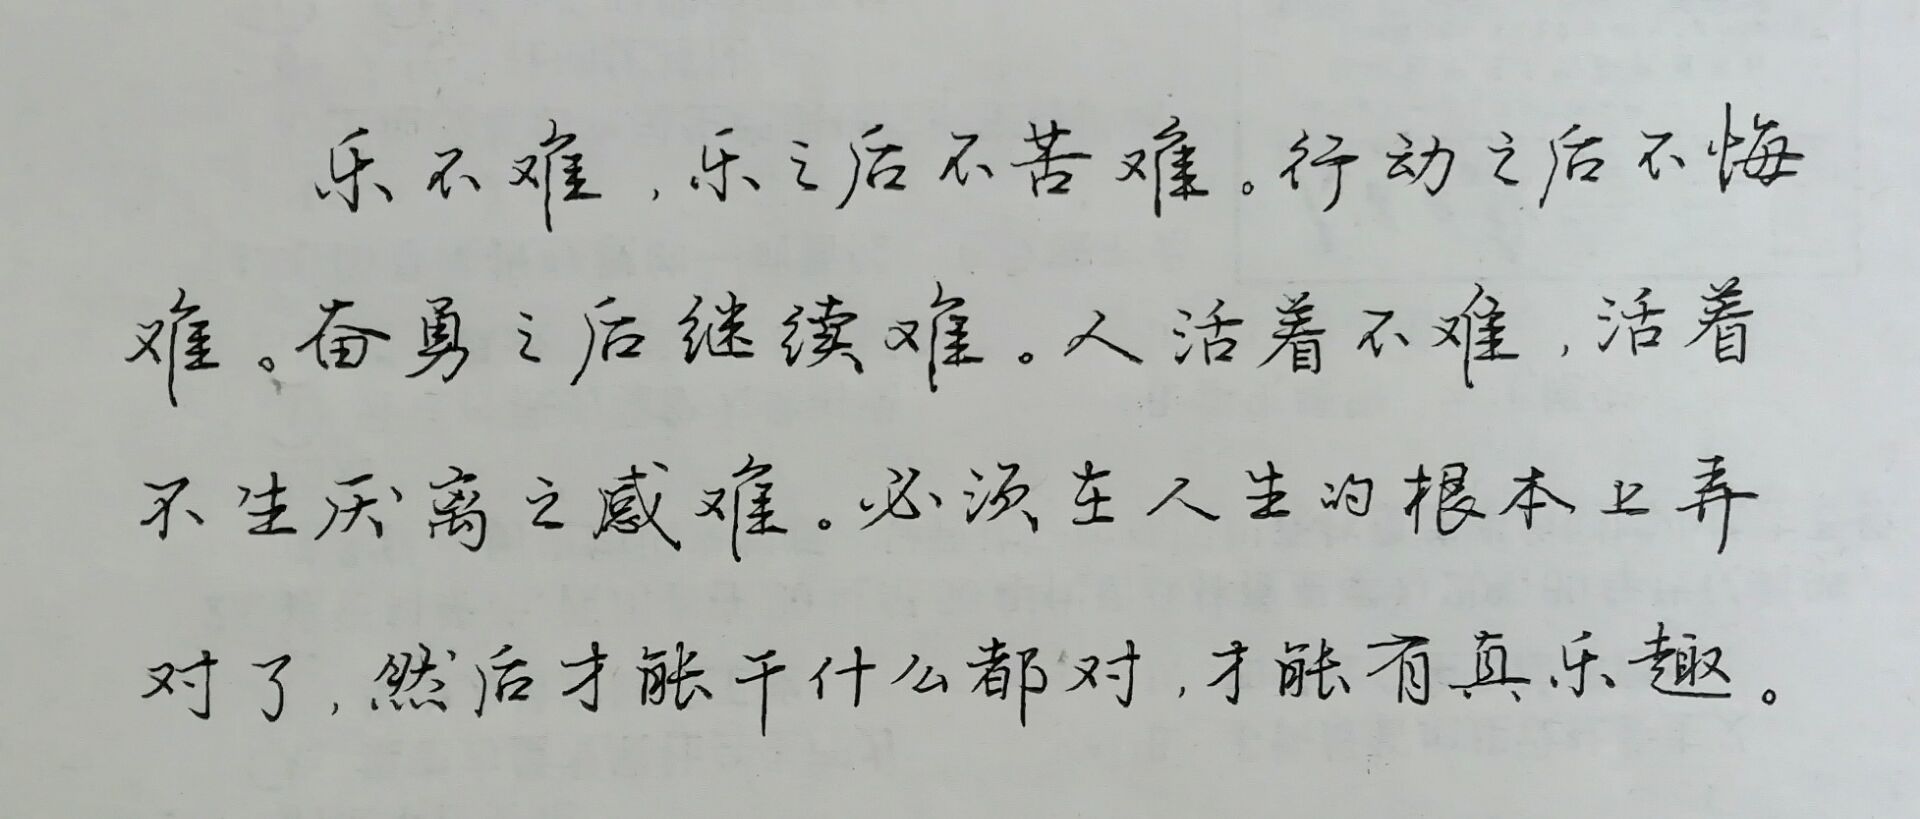 乐不难，乐之后不苦难。行动之后不悔
难。奋勇之后继续难。人活着不难，活着
不生厌离之感难。必须在人生的根本上弄
对了，然后才能干什么都对，才能有真乐趣。